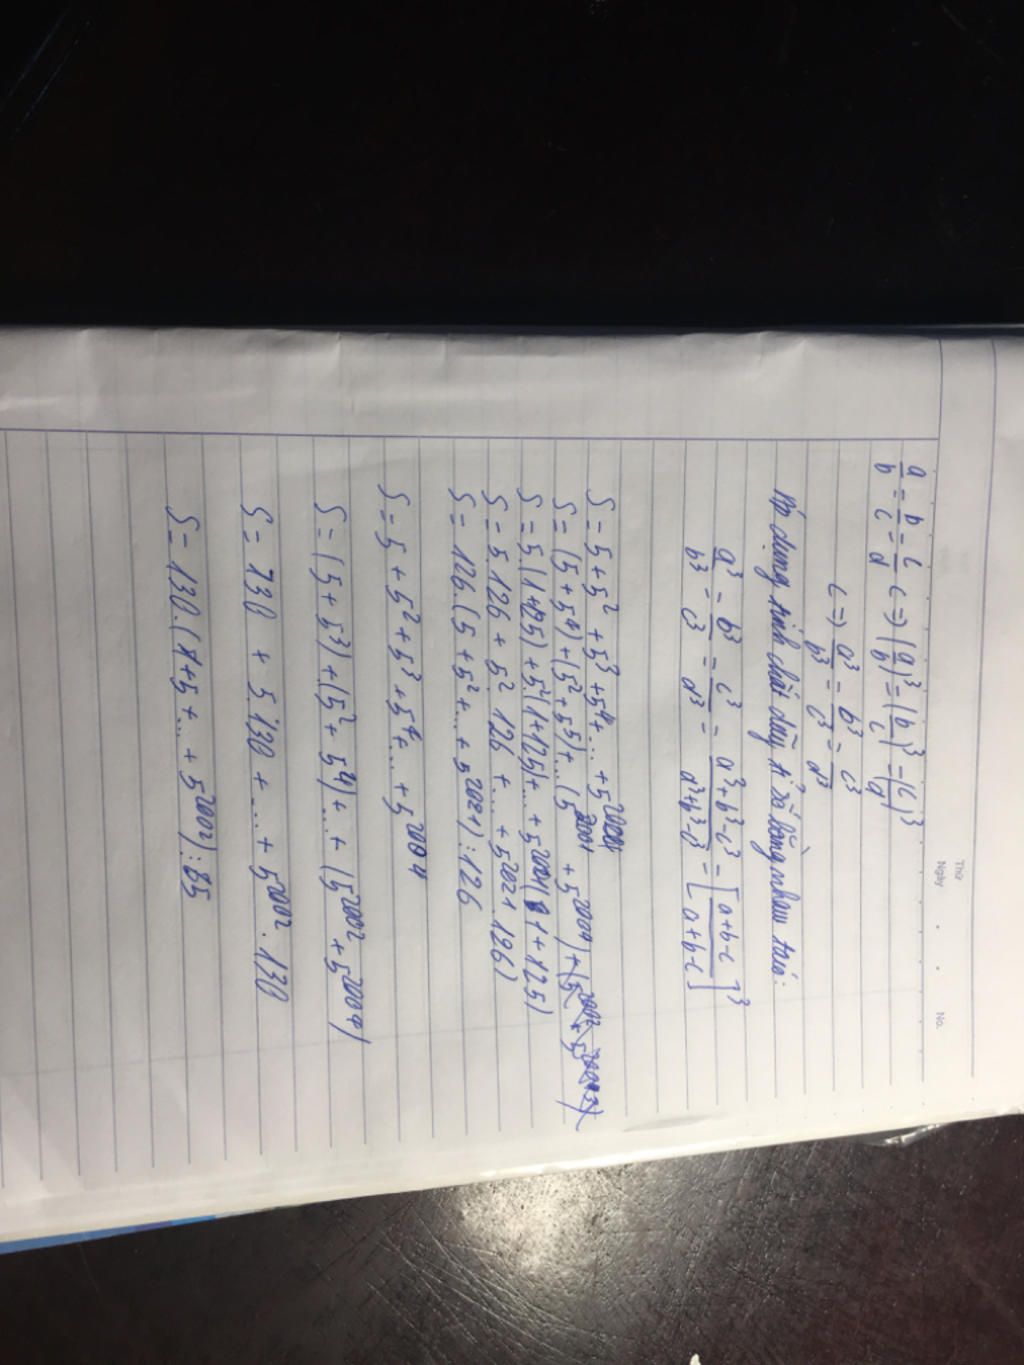 Thứ
Ngày . . No.
a/b = b/c = c/d <=> (a/b)³ = (b/c)³ = (c/d)³
<=> a³/b³ = b³/c³ = c³/d³
Áp dụng tính chất dãy tỉ số bằng nhau
a³/b³ = b³/c³ = c³/d³ = a³+b³-c³/d³+b³-c³ = [a+b-c/a+b-c]³
S = 5 + 5² + 5³ + 5⁴ + ... + 5²⁰⁰⁴
S = (5 + 5⁴) + (5² + 5⁵) + ... (5²⁰⁰¹ + 5²⁰⁰⁴)
S = 5.(1+125) + 5²(1+125) + ... + 5²⁰⁰¹(1+125)
S = 5.126 + 5².126 + ... + 5²⁰²¹.126)
S = 126.(5 + 5² + ... + 5²⁰²¹):126
S = 5 + 5² + 5³ + 5⁴ + ... + 5²⁰⁰⁴
S = (5 + 5³) + (5² + 5⁴) + ... + (5²⁰⁰² + 5²⁰⁰⁴)
S = 130 + 5.130 + ... + 5²⁰⁰².130
S = 130.(1+5+... + 5²⁰⁰²):65